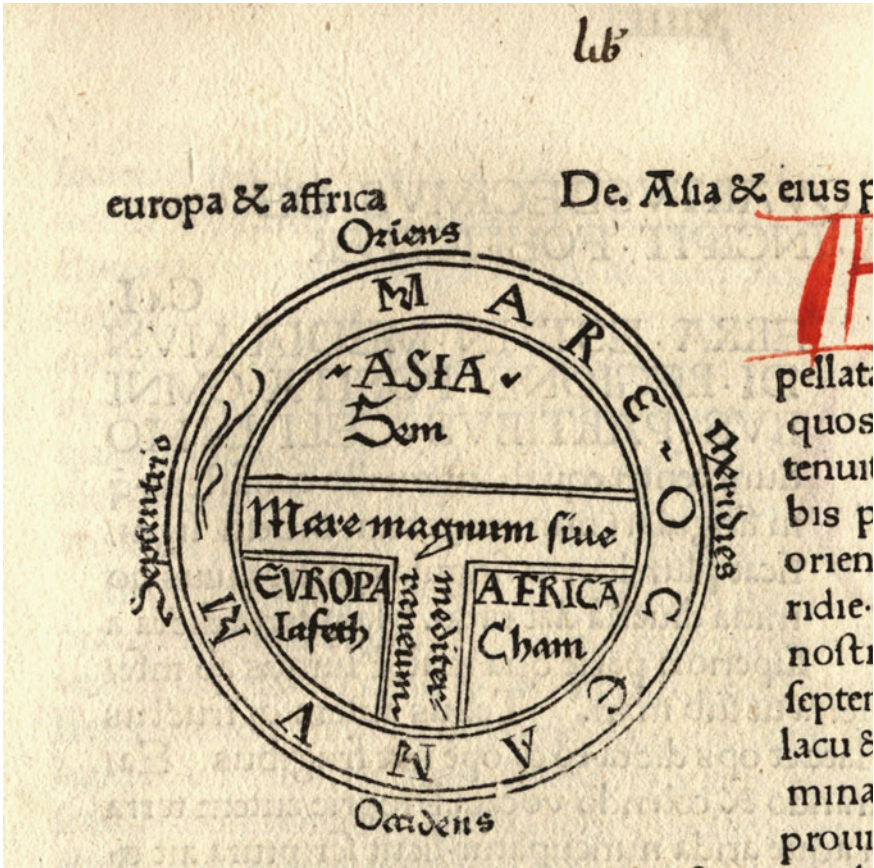 lib
europa & affrica
De. Asia & eius p
Oriens
MARE OCEANVM
ASIA
Sem
Septentrio
Meridies
Mare magnum siue
mediter
raneum
EVROPA
Iafeth
AFRICA
Cham
Occidens
TH
pellata
quos
tenuit
bis p
orien
ridie.
nostr
septen
lacu &
mina
prouin